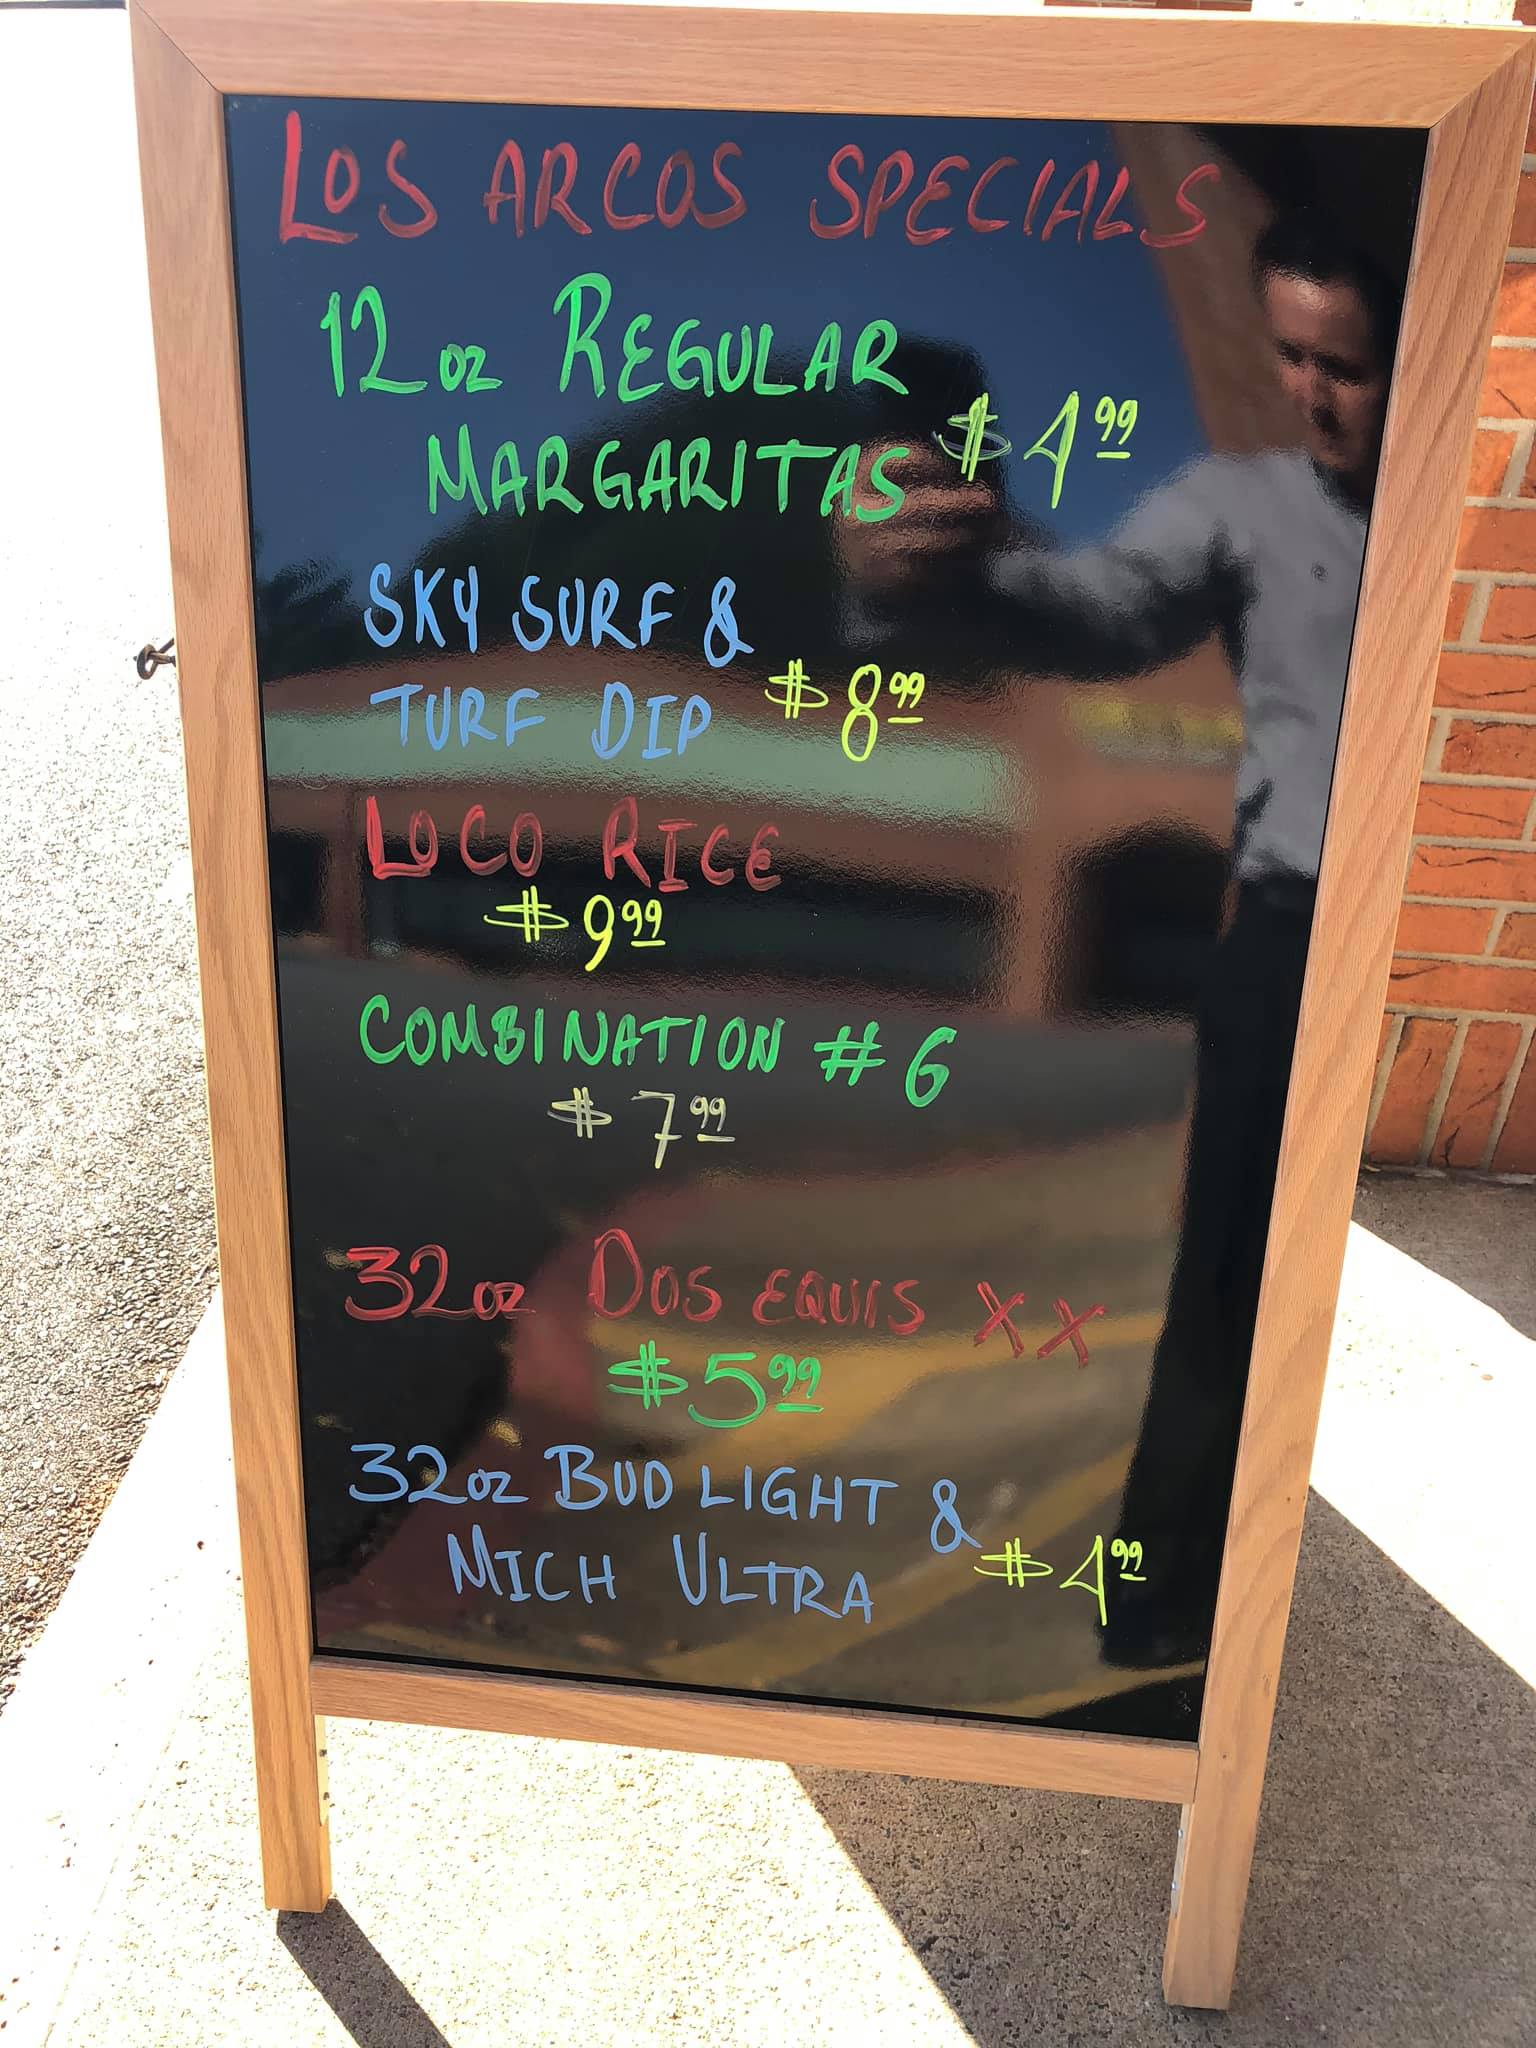 LOS ARCOS SPECIALS
12oz REGULAR
MARGARITAS $4.99
SKY SURF &
TURF DIP $8.99
LOCO RICE
$9.99
COMBINATION #6
$7.99
32oz DOS EQUIS XX
$5.99
32oz BUD LIGHT &
MICH ULTRA $4.99